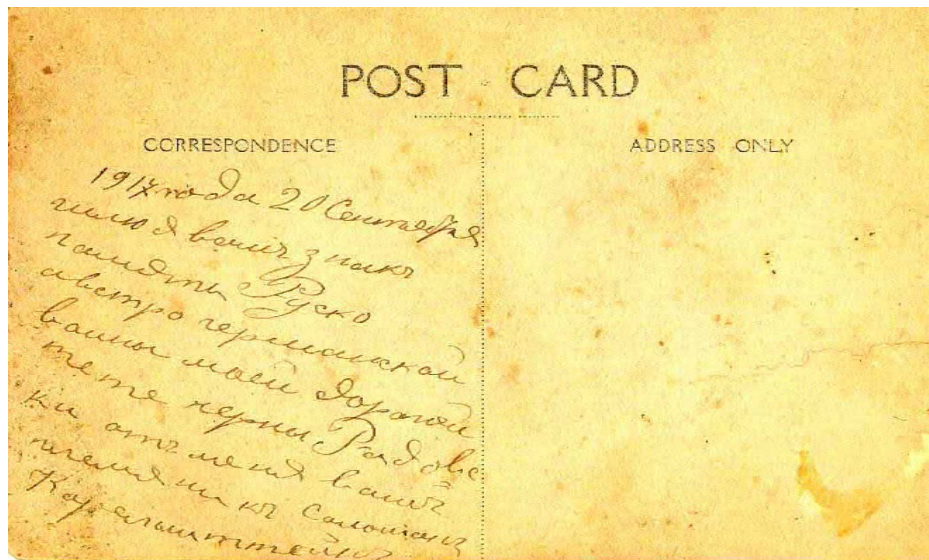 POST CARD
CORRESPONDENCE
ADDRESS ONLY
1917 года 20 Сентября
шлю я вамъ знакъ
памяти Руско
австро германской
войны моей дорогой
тете
отъ меня вашъ
племянникъ Саломонъ